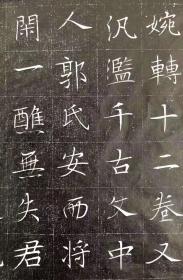 婉轉十二卷又
汎濫千古文中
人郭氏安而将
閈一醮無失君